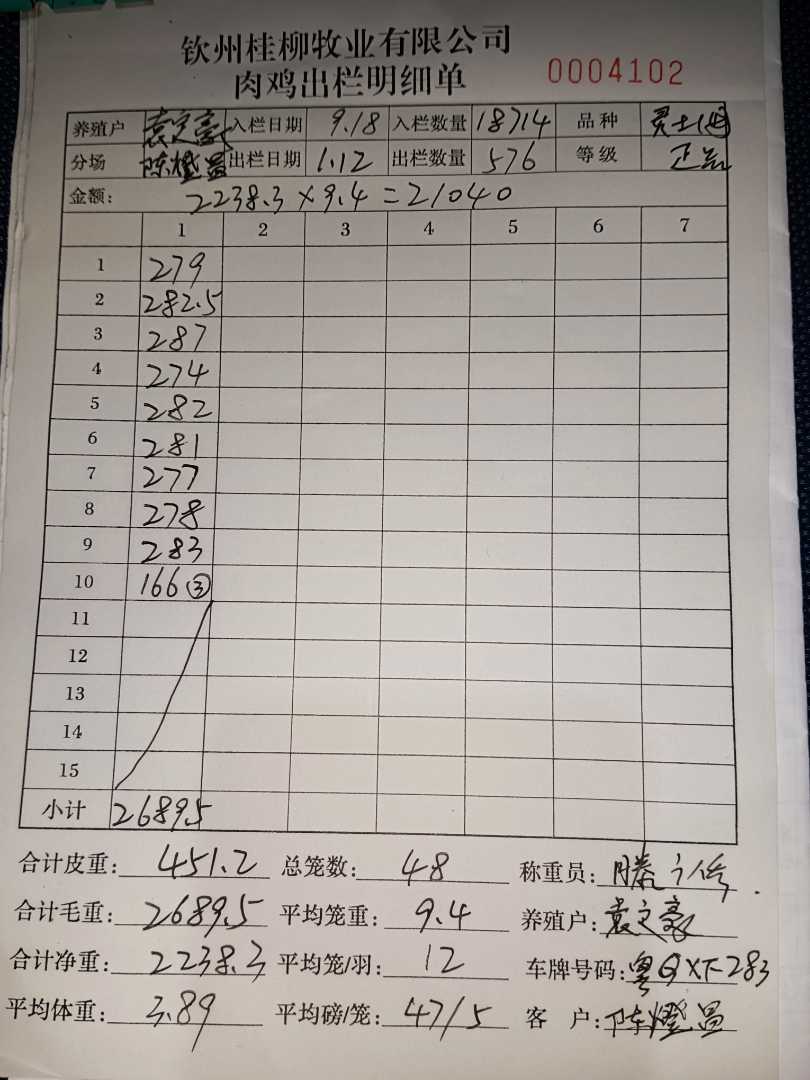 钦州桂柳牧业有限公司
肉鸡出栏明细单 0004102
养殖户 袁文豪 入栏日期 9.18 入栏数量 18714 品种
分场 陈燈昌 出栏日期 1.12 出栏数量 576 等级 正品
金额: 2238.3×9.4=21040
1 2 3 4 5 6 7
1 279
2 282.5
3 287
4 274
5 282
6 281
7 277
8 278
9 283
10 166③
11
12
13
14
15
小计 2689.5
合计皮重: 451.2 总笼数: 48 称重员:
合计毛重: 2689.5 平均笼重: 9.4 养殖户: 袁文豪
合计净重: 2238.3 平均笼/羽: 12 车牌号码: 283
平均体重: 3.89 平均磅/笼: 47/5 客 户: 陈燈昌